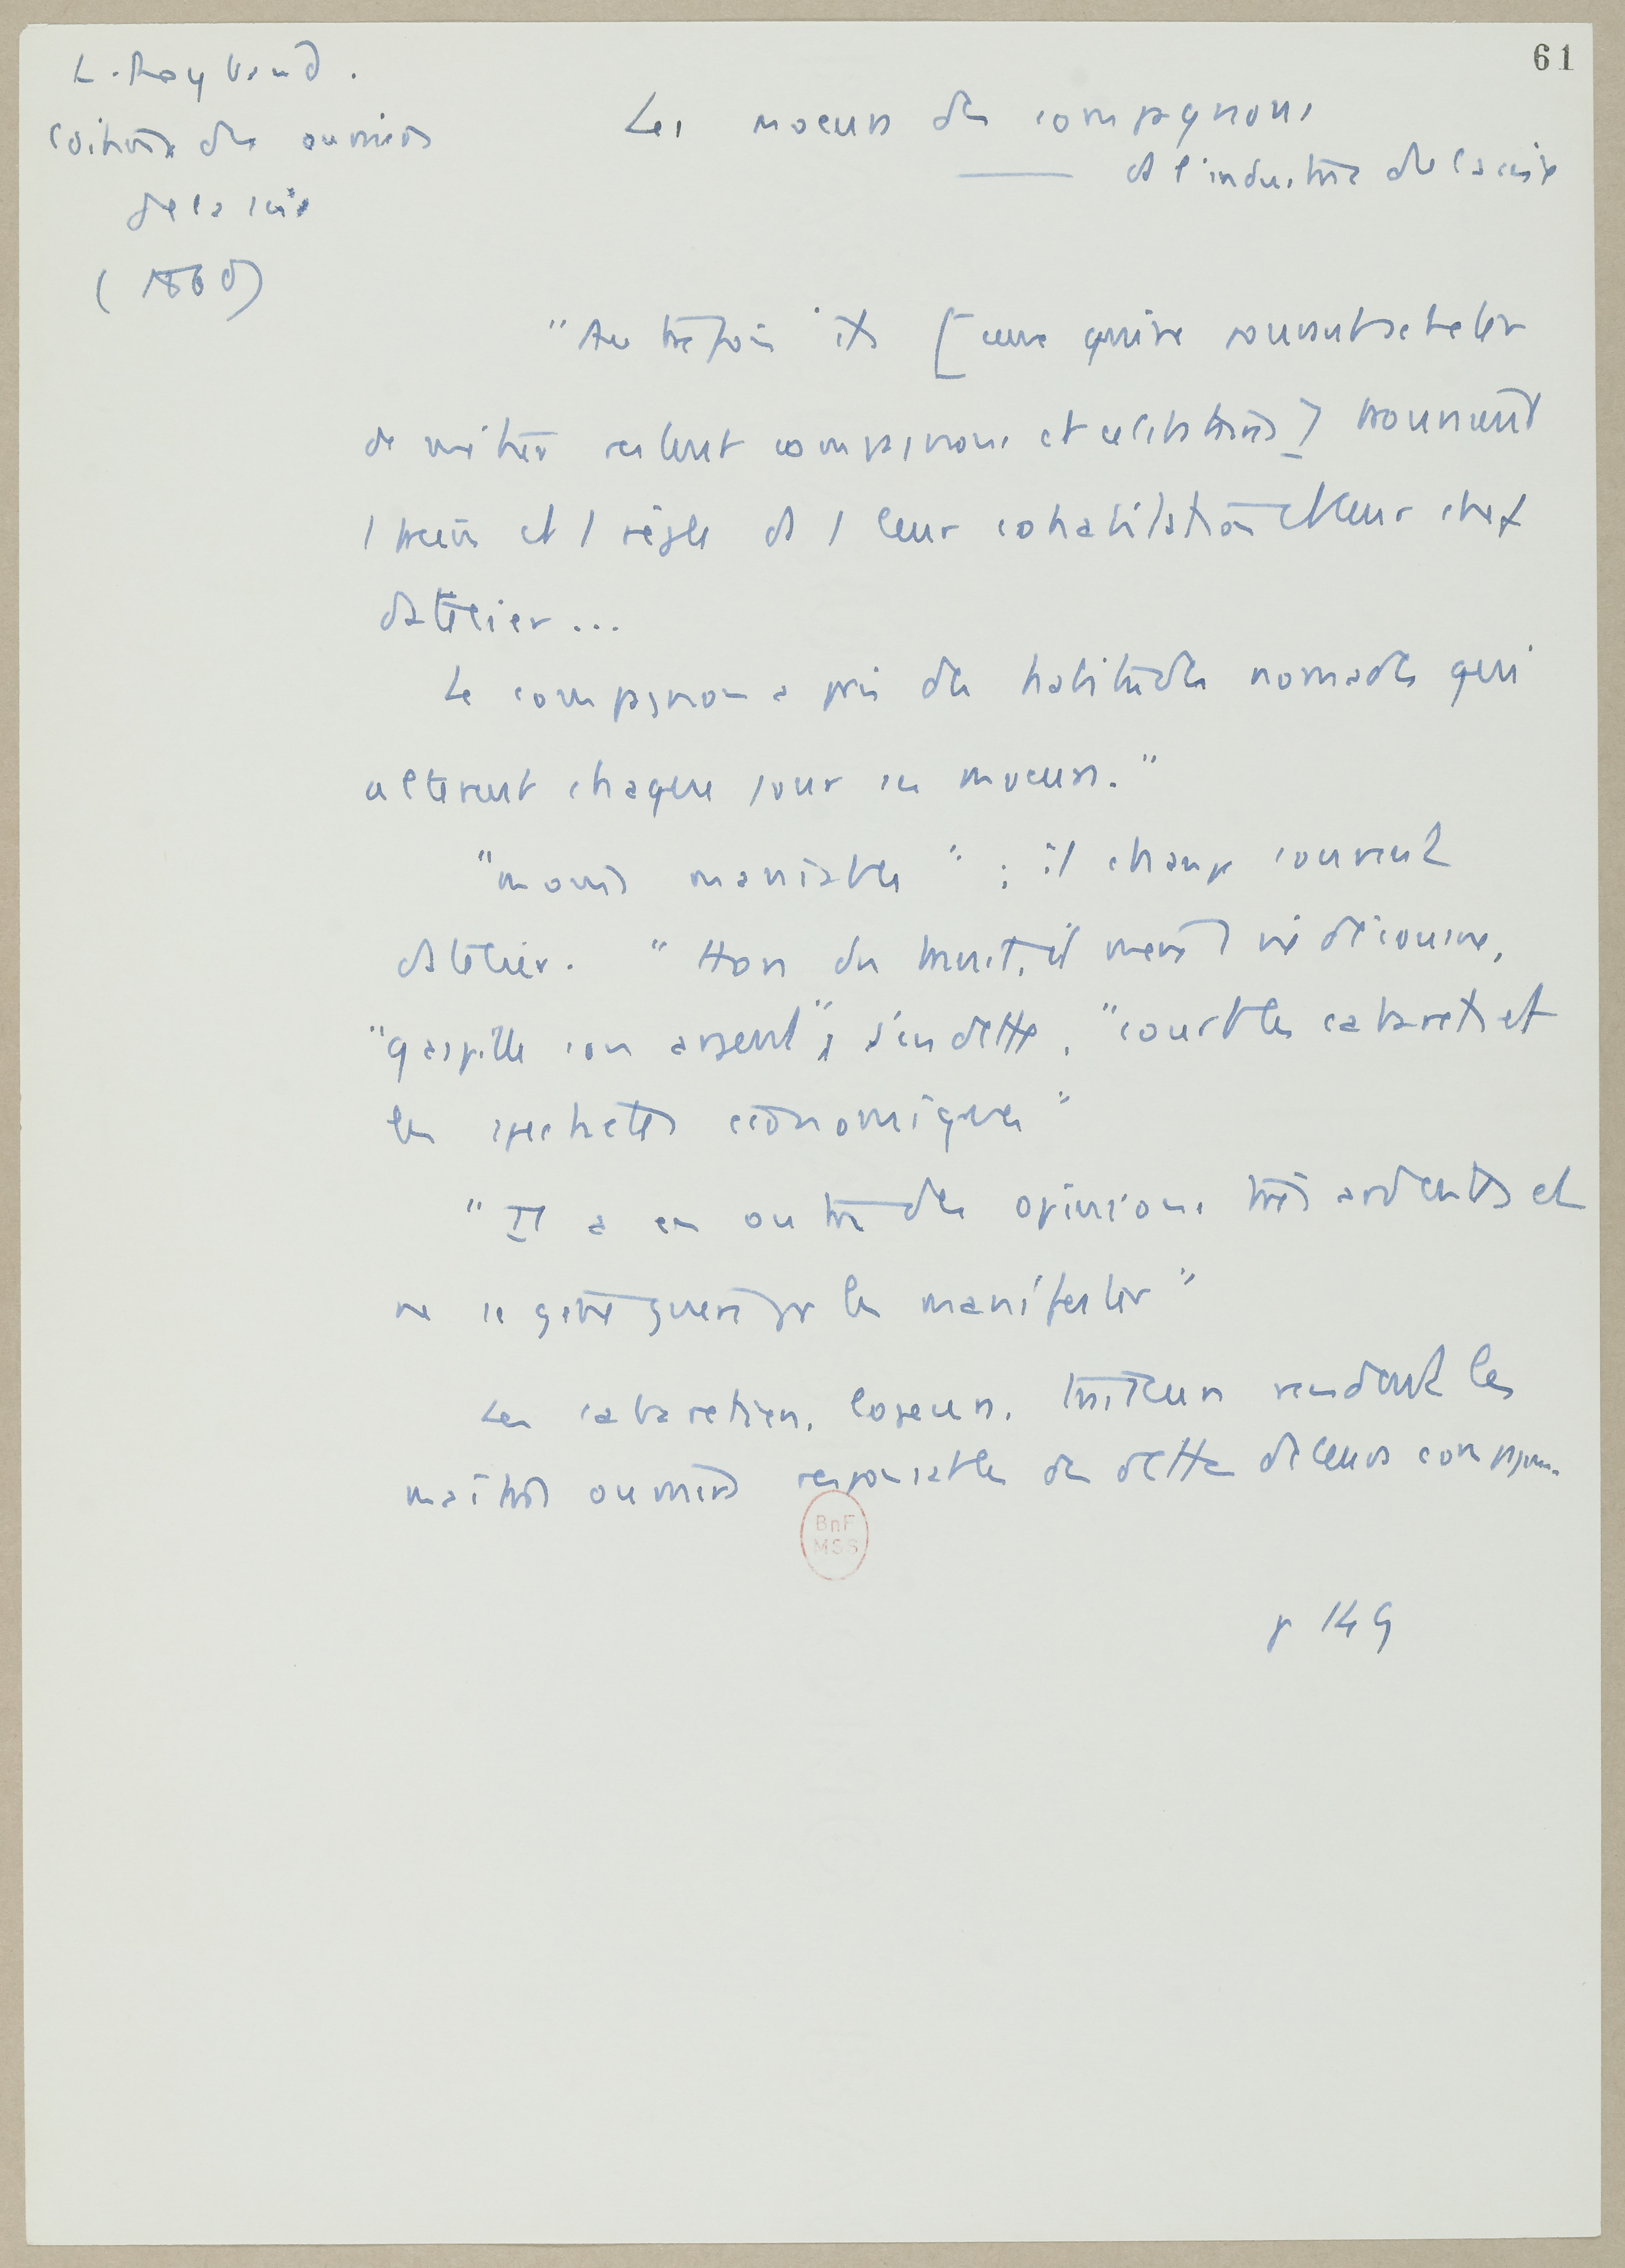 61
L. Reybaud.
Condition des ouvriers
de la soie
(1860)
Les moeurs des compagnons
ds l'industrie de la soie
"Autrefois ils [ceux qui ne pouvaient acheter
de métier restent compagnons et célibataires] trouvaient
1 frein et 1 règle ds leur cohabitation et leur chef
d'atelier...
Le compagnon a pris des habitudes nomades qui
altèrent chaque jour ses moeurs."
"moins maniable" ; il change souvent
d'atelier. "Hors du travail, il mène 1 vie décousue,
"gaspille son argent", s'endette, "court les cabarets et
les spectacles économiques"
"Il a en outre des opinions très ardentes et
ne se gêne guère pr les manifester"
Les cabaretiers, logeurs, traiteurs rendent les
maîtres ouvriers responsables des dettes de leurs compagnons
BnF
MSS
p 149